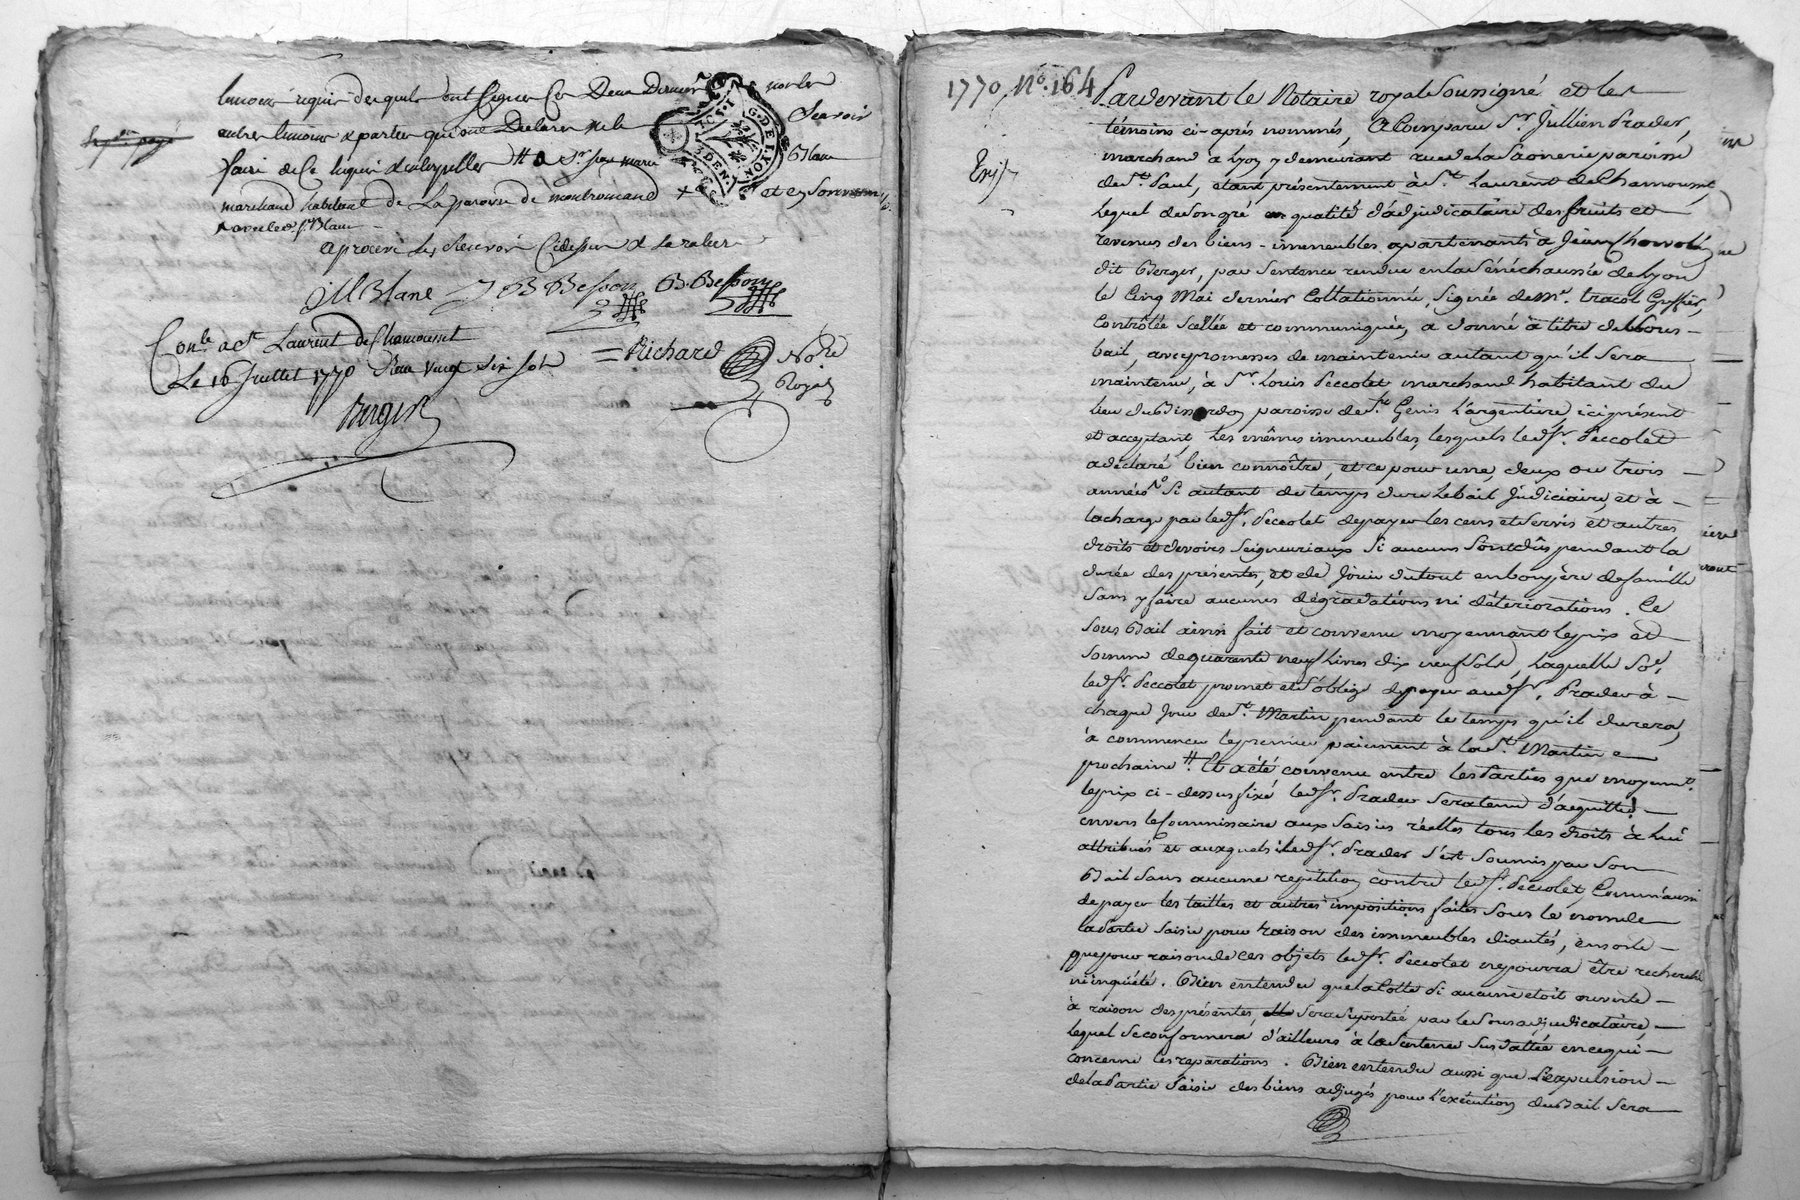 temoins requis desquels ont signé Ces Deux Derniers non les
autres temoins & parties qui ont Declaré ne le Scavoir
faire de Ce Requis & interpellés # a Sr Jean Marie Blanc
marchand habitant de La paroisse de montromand + et ez Sommes
+ avec led Sr Blanc
aprouvé Les Renvois Cidessus & La rature
JM Blanc JB Besson B. Besson
Conlé a St Laurent de Chamousset
Le 16 Juillet 1770 Reçu vingt six sols = Richard Notre
Royal
Berger
G. DE LYON
1770, No. 164
Expé
Pardevant le Notaire royal Soussigné et les
témoins ci-après nommés, A Comparu Sr. Jullien Prader,
marchand à Lyon y demeurant rue de la Saonerie paroisse
de St. Paul, étant présentement à St. Laurent de Chamousset,
Lequel de son gré en qualité d'adjudicataire des fruits et
revenus des biens-immeubles apartenants à Jean
dit Berger, par Sentence rendue en la Sénéchaussée de Lyon
le Cinq Mai dernier Collationnée, Signée de Me. tracol Greffier,
Contrôlée Scellée et communiquée, a donné à titre de Sous-
bail, avec promesses de maintenir autant qu'il Sera
maintenu, à Sr. Louis Peccolet marchand habitant du
lieu du paroisse de St. Genis L'argentiere, ici présent
et acceptant, Les mêmes immeubles, lesquels led. Sr. Peccolet
a déclaré bien connoître, et ce pour une, deux ou trois
années Si autant de temps dure Le bail Judiciaire, et à
la charge par led. Sr. Peccolet de payer les cens et Servis et autres
droits et devoirs Seigneuriaux Si aucuns Sont dûs pendant la
durée des présentes, et de Jouir du tout en bon père de famille
Sans y faire aucunes dégradations ni déteriorations. Ce
Sous Bail ainsi fait et convenu moyennant le prix et
Somme de quarente neuf Livres dix neuf Sols, Laquelle So.e,
led. Sr. Peccolet promet et S'oblige de payer aud. Sr. Prader à
chaque Jour de St. Martin pendant le temps qu'il durera,
à commencer le premier paiement à la St. Martin
prochaine #. Et a été convenu entre les Parties que moyent.
le prix ci-dessus fixé led. Sr. Prader Sera tenu d'acquitter
envers le Commissaire aux Saisies réelles tous les droits à Lui
attribués et auxquels led. Sr. Prader S'est Soumis par Son
Bail Sans aucune répétition contre led. Sr. Peccolet, Comm'aussi
de payer les tailles et autres impositions faites Sous le nom de
la Partie Saisie pour raison des immeubles diautés, ensorte
que pour raison de ces objets led. Sr. Peccolet ne pourra être recherché
ni inquiété. Bien entendu que la Cotte Si aucune etoit ouverte
à raison des présentes Sera Suportée par le Sous adjudicataire,
lequel Se conformera d'ailleurs à la Sentence Sus dattée en ce qui
concerne les réparations. Bien entendu aussi que L'expulsion
de la Partie Saisie des biens adjugés pour L'exécution du Bail Sera